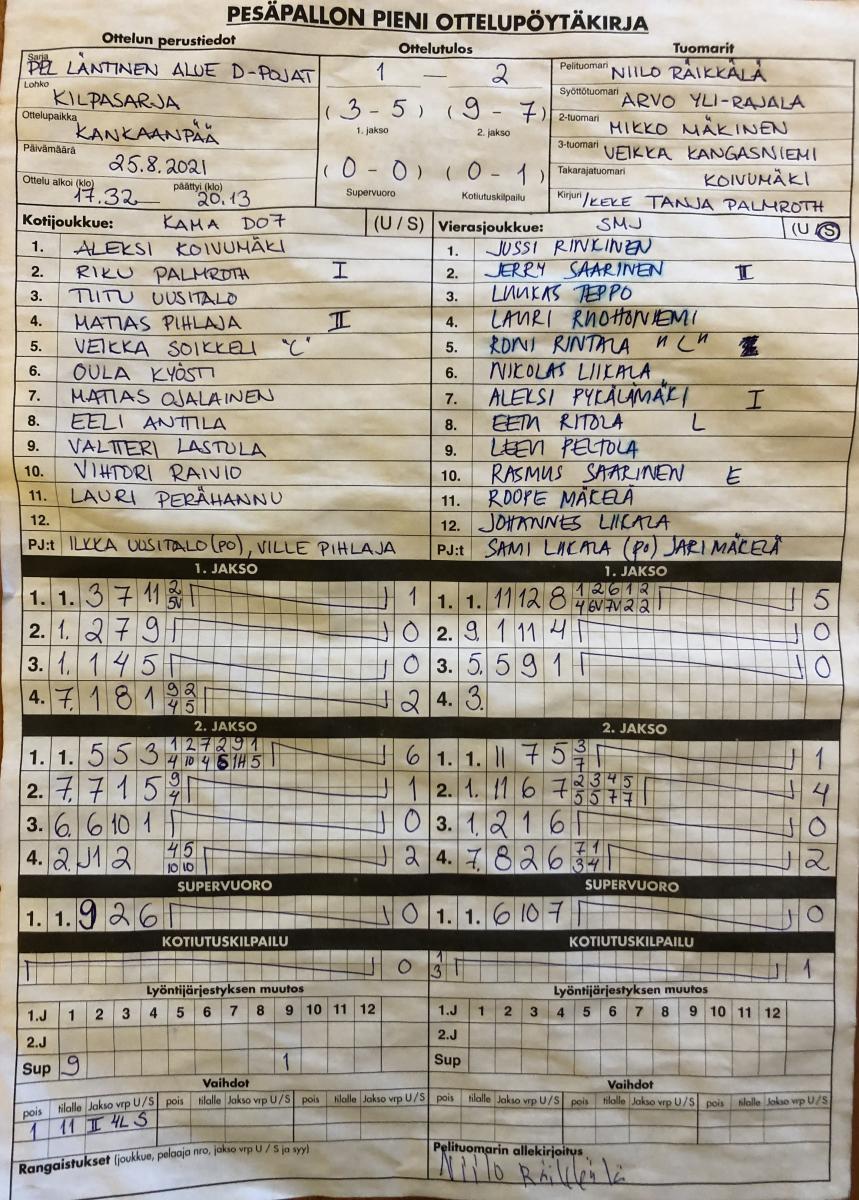 PESÄPALLON PIENI OTTELUPÖYTÄKIRJA
Ottelun perustiedot Ottelutulos Tuomarit
Sarja PEL LÄNTINEN ALUE D-POJAT 1 — 2 Pelituomari NIILO RÄIKKÄLÄ
Lohko KILPASARJA (3 - 5) (9 - 7) Syöttötuomari ARVO YLI-RAJALA
Ottelupaikka KANKAANPÄÄ 1. jakso 2. jakso 2-tuomari MIKKO MÄKINEN
Päivämäärä 25.8.2021 (0 - 0) (0 - 1) 3-tuomari VEIKKA KANGASNIEMI
Takarajatuomari KOIVUMÄKI
Ottelu alkoi (klo) 17.32 päättyi (klo) 20.13 Supervuoro Kotiutuskilpailu Kirjuri /KEKE TANJA PALMROTH
Kotijoukkue: KAMA D07 (U / S) Vierasjoukkue: SMJ (U / S)
1. ALEKSI KOIVUMÄKI 1. JUSSI RINKINEN
2. RIKU PALMROTH I 2. JERRY SAARINEN II
3. TIITU UUSITALO 3. LUUKAS TEPPO
4. MATIAS PIHLAJA II 4. LAURI RUOHONIEMI
5. VEIKKA SOIKKELI "C" 5. RONI RINTALA "C"
6. OULA KYÖSTI 6. NIKOLAS LIIKALA
7. MATIAS OJALAINEN 7. ALEKSI PYKÄLÄMÄKI I
8. EELI ANTTILA 8. EETU RITOLA L
9. VALTTERI LASTULA 9. LEEVI PELTOLA
10. VIHTORI RAIVIO 10. RASMUS SAARINEN E
11. LAURI PERÄHANNU 11. ROOPE MÄKELÄ
12. 12. JOHANNES LIIKALA
PJ:t ILKKA UUSITALO (PO), VILLE PIHLAJA PJ:t SAMI LIIKALA (PO) JARI MÄKELÄ
1. JAKSO 1. JAKSO
1. 1. 3 7 11 2/5V 1 1. 1. 11 12 8 1/4 2/6V 6/7V 1/2 2/2 5
2. 1. 2 7 9 0 2. 9. 1 11 4 0
3. 1. 1 4 5 0 3. 5. 5 9 1 0
4. 7. 1 8 1 9/4 2/5 2 4. 3.
2. JAKSO 2. JAKSO
1. 1. 5 5 3 1/4 2/10 7/4 2/6 9/1H 1/5 6 1. 1. 11 7 5 3/7 1
2. 7. 7 1 5 9/4 1 2. 1. 11 6 7 2/5 3/5 4/7 5/7 4
3. 6. 6 10 1 0 3. 1. 2 1 6 0
4. 2. J1 2 4/10 5/10 2 4. 7. 8 2 6 7/3 1/4 2
SUPERVUORO SUPERVUORO
1. 1. 9 2 6 0 1. 1. 6 10 7 0
KOTIUTUSKILPAILU KOTIUTUSKILPAILU
0 1/3 1
Lyöntijärjestyksen muutos Lyöntijärjestyksen muutos
1.J 1 2 3 4 5 6 7 8 9 10 11 12 1.J 1 2 3 4 5 6 7 8 9 10 11 12
2.J 2.J
Sup 9 1 Sup
Vaihdot Vaihdot
pois tilalle Jakso vrp U/S pois tilalle Jakso vrp U/S pois tilalle Jakso vrp U/S pois tilalle Jakso vrp U/S pois tilalle Jakso vrp U/S pois tilalle Jakso vrp U/S
1 11 II 4L S
Rangaistukset (joukkue, pelaaja nro, jakso vrp U / S ja syy) Pelituomarin allekirjoitus
Niilo Räikkälä